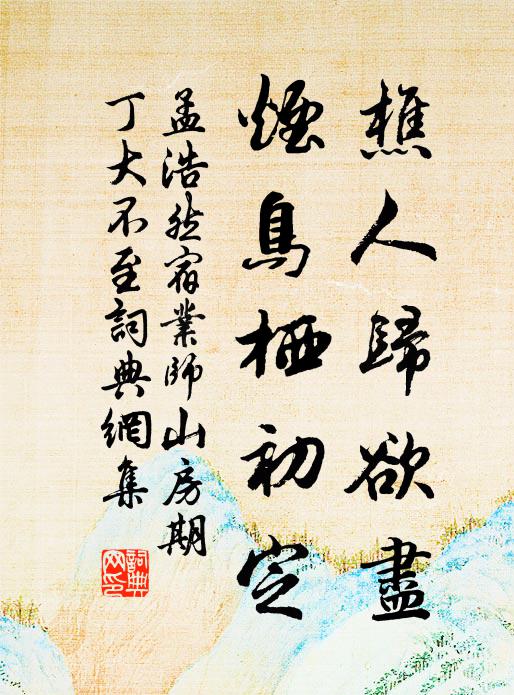 樵人歸欲盡
煙鳥栖初定
孟浩然宿業師山房期
丁大不至詞典網集
詞典
网印